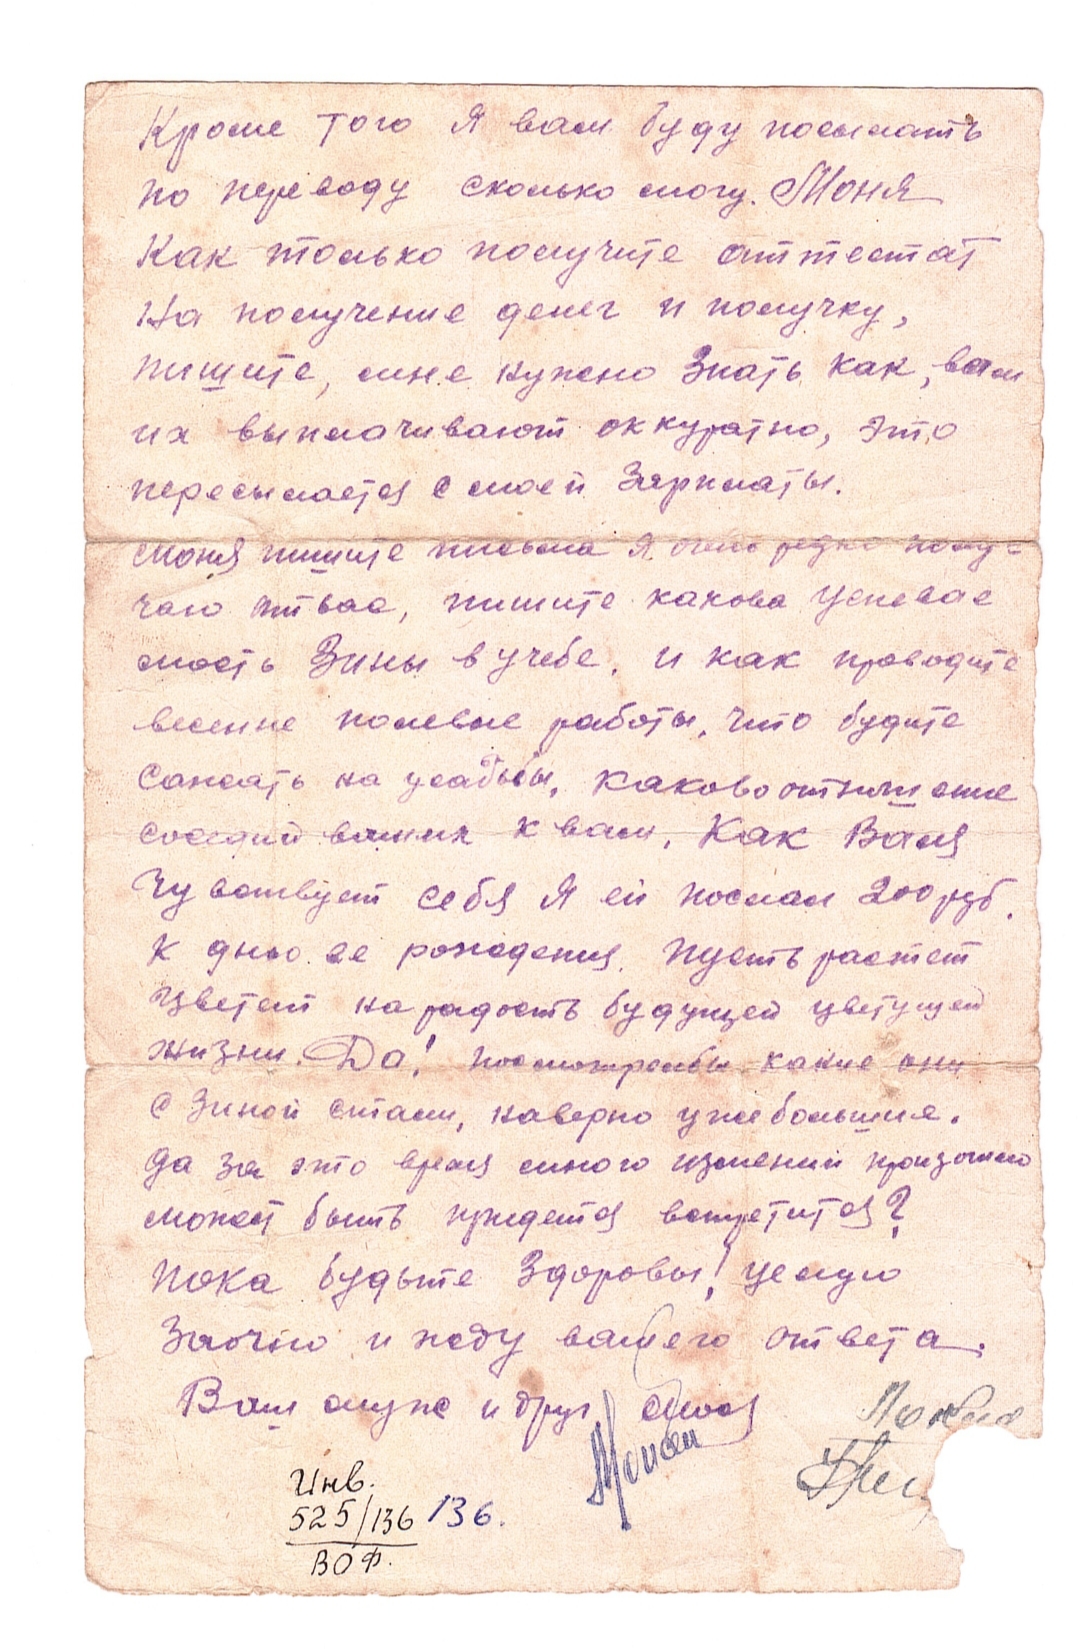 Кроме того я вам буду посылать
по переводу сколько могу. Моня
Как только получите аттестат
На получение денег и получку,
пишите, мне нужно знать как, вам
их выплачивают оккуратно, это
пересылается с моей Зарплаты.
Моня пишите письма я очень редко полу-
чаю от вас, пишите какова успевае
мость Зины в учебе. и как проводите
весение полевые работы. что будите
сажать на усадьбы, каково отношение
соседий ваших к вам. Как Валя
Чувствует себя я ей послал 200 руб.
К дню ее рождения. Пусть растет
Цветет на радость будущей цветущей
жизни. Да! посмотрелбы какие они
с Зиной стали, наверно уже большие.
да за это время много изменений произошло
может быть прийдется встретится?
Пока будьте Здоровы! целую
Заочно и жду вашего ответа.
Ваш муж и друг
Инв.
525/136 136.
ВОФ.